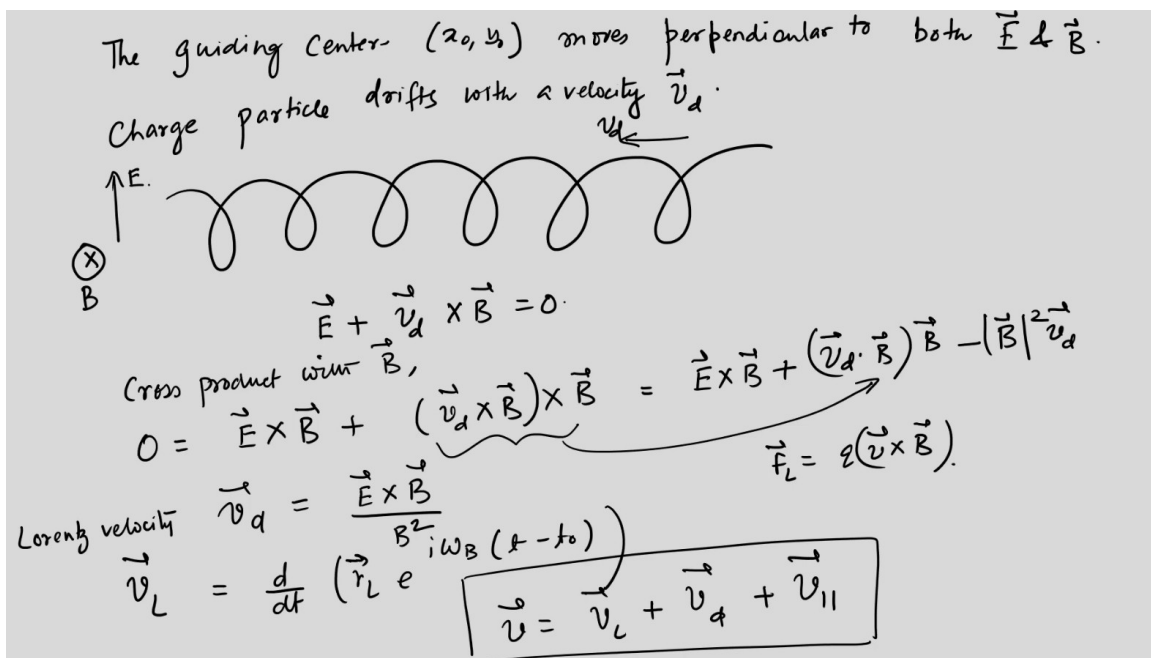 The guiding center (x₀, y₀) moves perpendicular to both \vec{E} & \vec{B}.
Charge particle drifts with a velocity \vec{v}_d.
v_d ←
↑ E.
⊗
B
\vec{E} + \vec{v}_d × \vec{B} = 0.
Cross product with \vec{B},
0 = \vec{E} × \vec{B} + (\vec{v}_d × \vec{B}) × \vec{B} = \vec{E} × \vec{B} + (\vec{v}_d · \vec{B}) \vec{B} - |\vec{B}|² \vec{v}_d
\vec{F}_L = q(\vec{v} × \vec{B}).
\vec{v}_d = \frac{\vec{E} × \vec{B}}{B²}
Lorentz velocity
\vec{v}_L = \frac{d}{dt} (\vec{r}_L e^{iω_B (t - t₀)})
\vec{v} = \vec{v}_L + \vec{v}_d + \vec{v}_{||}